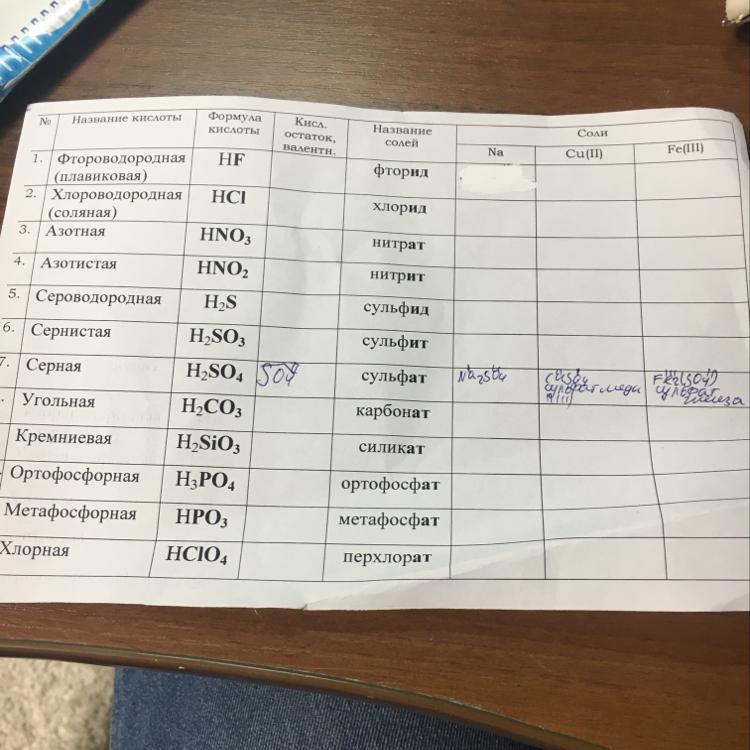 № Название кислоты Формула кислоты Кисл. остаток, валентн. Название солей Соли
Na Cu(II) Fe(III)
1. Фтороводородная (плавиковая) HF фторид
2. Хлороводородная (соляная) HCl хлорид
3. Азотная HNO₃ нитрат
4. Азотистая HNO₂ нитрит
5. Сероводородная H₂S сульфид
6. Сернистая H₂SO₃ сульфит
7. Серная H₂SO₄ SO4 сульфат Na₂SO₄ CuSO₄ сульфат меди (II) Fe₂(SO₄) сульфат железа
Угольная H₂CO₃ карбонат
Кремниевая H₂SiO₃ силикат
Ортофосфорная H₃PO₄ ортофосфат
Метафосфорная HPO₃ метафосфат
Хлорная HClO₄ перхлорат